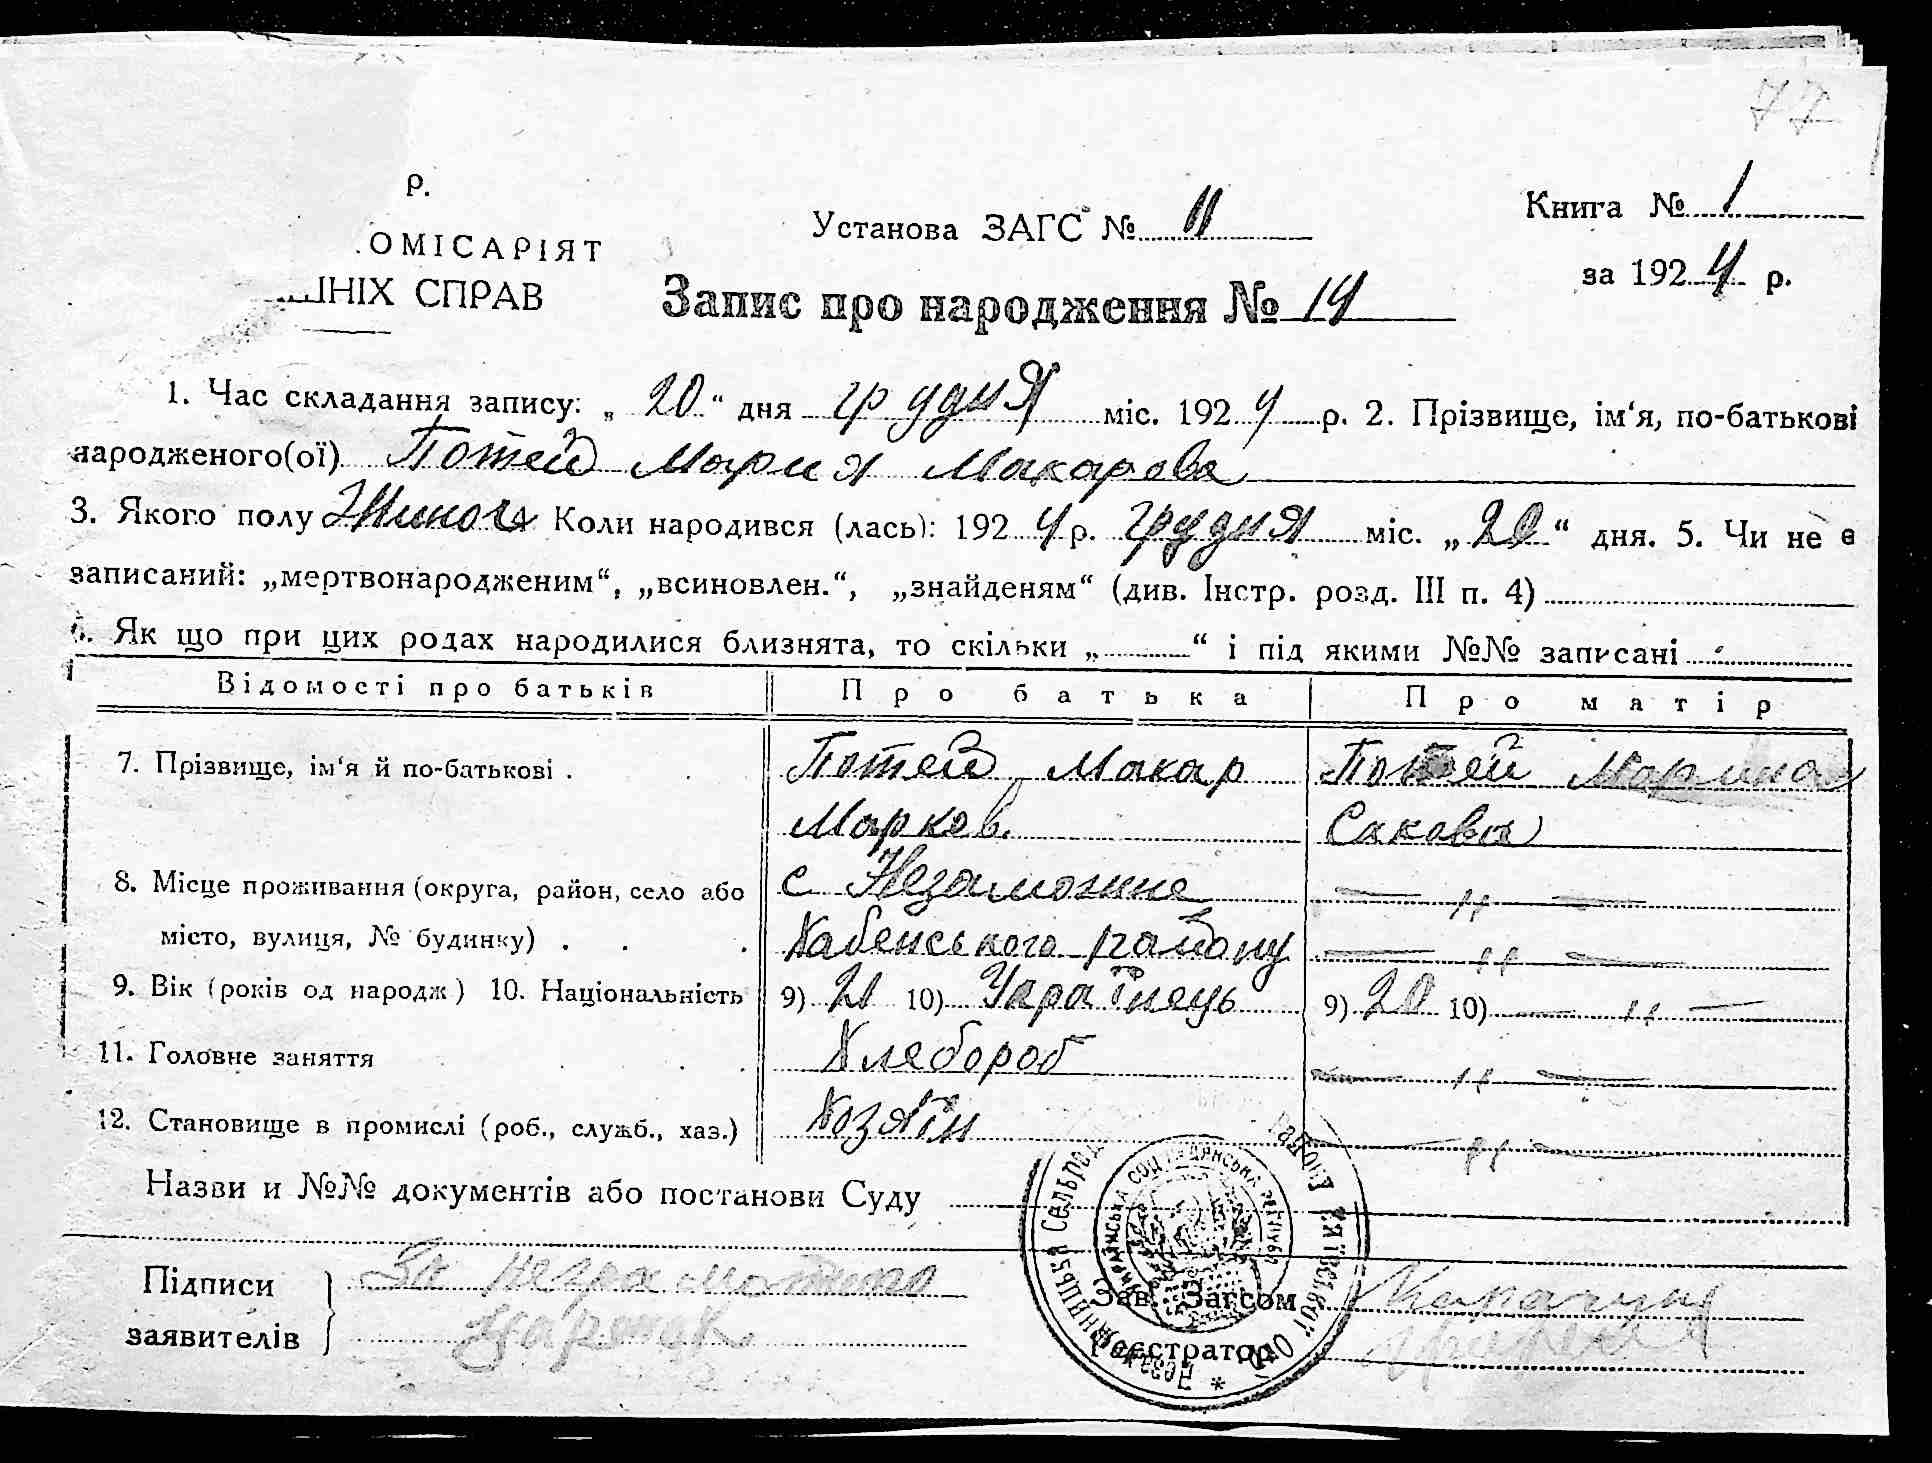 77
Р.
ОМІСАРІЯТ
ШНІХ СПРАВ
Установа ЗАГС № 11
Книга № 1
за 1924 р.
Запис про народження № 14
1. Час складання запису: „ 20 “ дня грудня міс. 1924 р. 2. Прізвище, ім‘я, по-батькові
народженого(ої) Потей Мария Макарова
3. Якого полу Жиноча Коли народився (лась): 1924 р. грудня міс. „ 20 “ дня. 5. Чи не є
записаний: „мертвонародженим“, „всиновлен.“, „знайденям“ (див. Інстр. розд. III п. 4)
6. Як що при цих родах народилися близнята, то скільки „ “ і під якими №№ записані
Відомості про батьків Про батька Про матір
7. Прізвище, ім‘я й по-батькові . Потей Макар Потей Марина
Марков. Сакова
8. Місце проживання (округа, район, село або с Незаможне — „ —
місто, вулиця, № будинку) . . . Хабенського району — „ —
9. Вік (років од народж) 10. Національність 9) 21 10) Українець 9) 20 10) — „ —
11. Головне заняття . . . Хлебороб — „ —
12. Становище в промислі (роб., служб., хаз.) Хозяїн — „ —
Назви и №№ документів або постанови Суду
Підписи
заявителів
За неграмотно
Зав. Загсом
Реєстратор